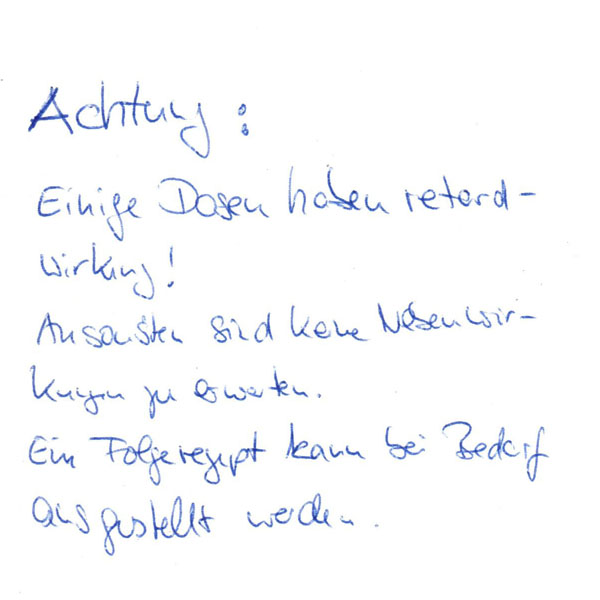 Achtung:
Einige Dosen haben retard-
wirkung!
Ansonsten sind keine Nebenwir-
kungen zu erwarten.
Ein Folgerezept kann bei Bedarf
ausgestellt werden.